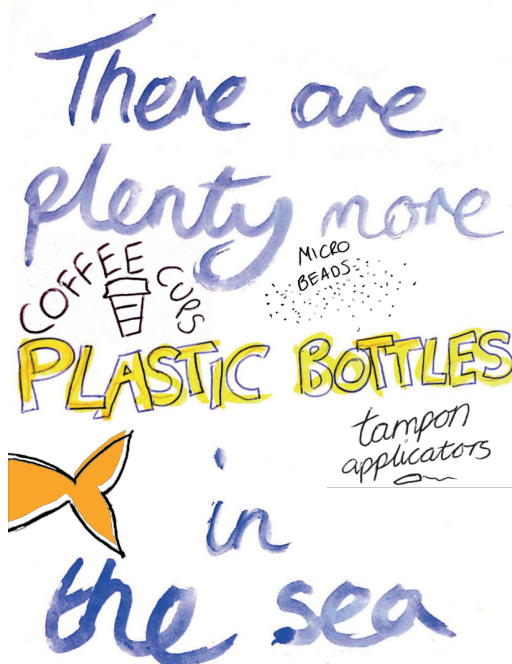 There are
plenty more
COFFEE CUPS
MICRO
BEADS
PLASTIC BOTTLES
tampon
applicators
in
the sea